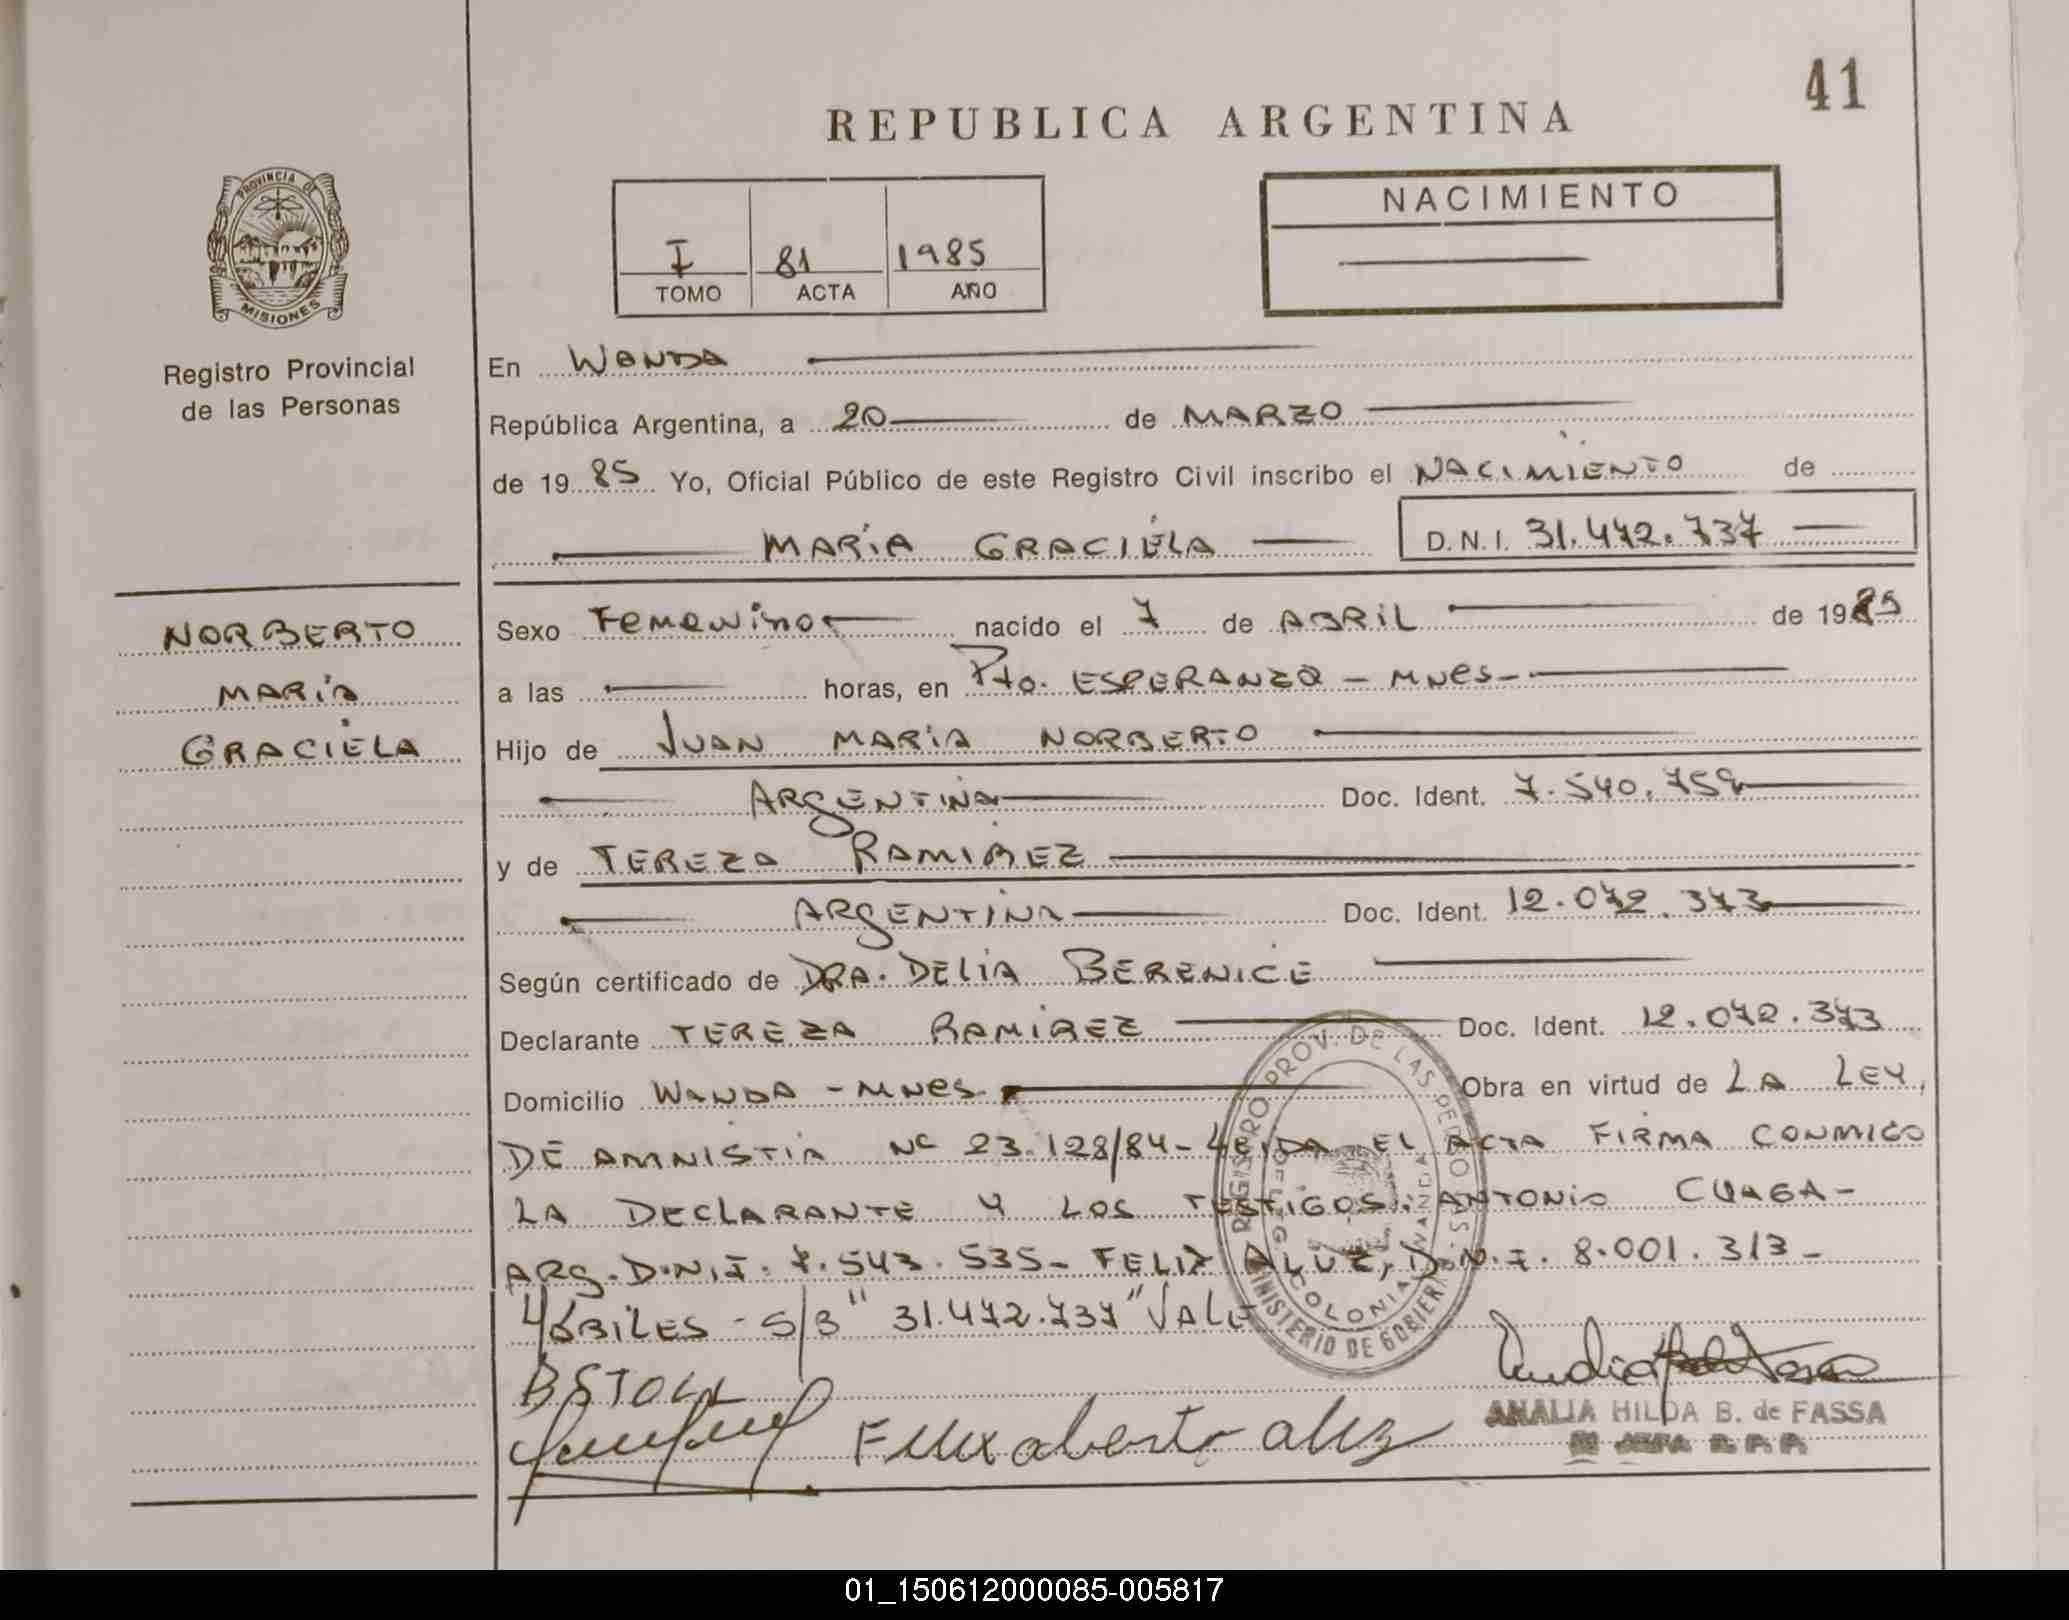 41
REPUBLICA ARGENTINA
PROVINCIA DE
MISIONES
Registro Provincial
de las Personas
I 81 1985
TOMO ACTA AÑO
NACIMIENTO
En WANDA
República Argentina, a 20 de MARZO
de 1985 Yo, Oficial Público de este Registro Civil inscribo el NACIMIENTO de
MARIA GRACIELA D.N.I. 31.472.737
NORBERTO
MARIA
GRACIELA
Sexo Femenino nacido el 7 de ABRIL de 19
a las horas, en Pto. ESPERANZA - MNES-
Hijo de JUAN MARIA NORBERTO
ARGENTINA Doc. Ident. 7.540.759
y de TEREZA RAMIREZ
ARGENTINA Doc. Ident. 12.072.373
Según certificado de DRA. DELIA BERENICE
Declarante TEREZA RAMIREZ Doc. Ident. 12.072.373
Domicilio WANDA - MNES Obra en virtud de LA LEY,
DE AMNISTIA Nº 23.128/84 - LEIDA EL ACTA FIRMA CONMIGO
LA DECLARANTE Y LOS TESTIGOS: ANTONIO
ARG. D.N.I. 7.543.535 - FELIX ALVEZ, D.N.I. 8.001.313 -
S/B "31.472.737" VALE
REGISTRO PROV. DE LAS PERSONAS
MINISTERIO DE GOBIERNO
DELEG. COLONIA WANDA
Felix alberto alvez
ANALIA HILDA B. de FASSA
JEFA R. P. P.
01_150612000085-005817